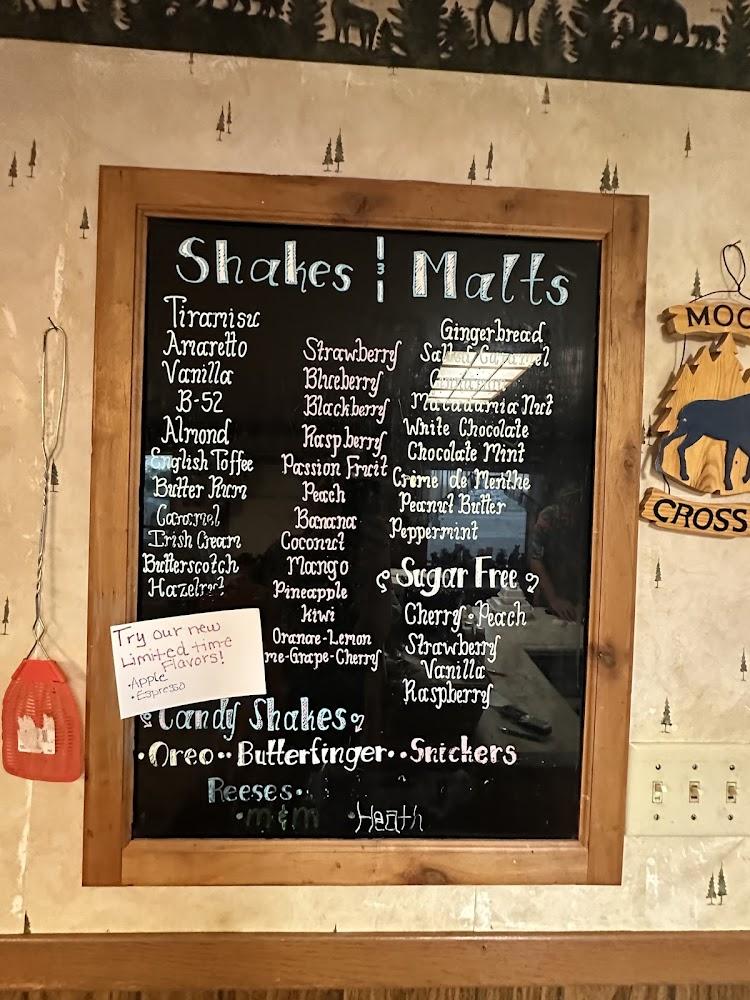 Shakes & Malts
Tiramisu
Amaretto
Vanilla
B-52
Almond
English Toffee
Butter Rum
Caramel
Irish Cream
Butterscotch
Hazelnut
Strawberry
Blueberry
Blackberry
Raspberry
Passion Fruit
Peach
Banana
Coconut
Mango
Pineapple
Kiwi
Orange-Lemon
me-Grape-Cherry
Gingerbread
Salted Caramel
Macadamia Nut
White Chocolate
Chocolate Mint
Créme de Menthe
Peanut Butter
Peppermint
Sugar Free
Cherry • Peach
Strawberry
Vanilla
Raspberry
Try our new
Limited time
Flavors!
• Apple
• Espresso
Candy Shakes
• Oreo • • Butterfinger • • Snickers
Reeses •
• m&m • Heath
MOO
CROSS